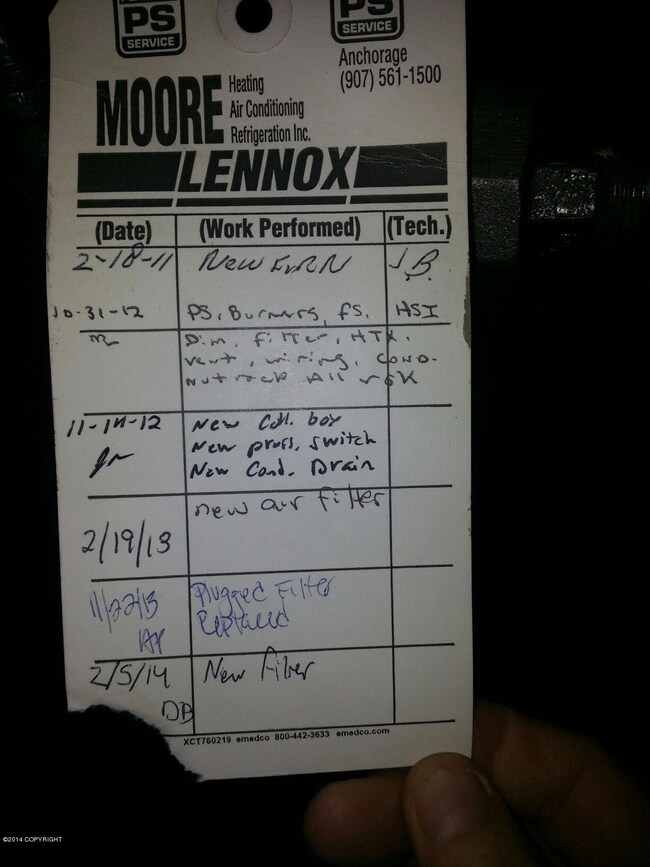 PS
SERVICE
PS
SERVICE
Anchorage
(907) 561-1500
MOORE
Heating
Air Conditioning
Refrigeration Inc.
LENNOX
(Date) (Work Performed) (Tech.)
2-18-11 New FURN J.B.
10-31-12 PS, Burners, FS, HSI
Dim, Filter, HTX,
vent, wiring, COND.
All OK
11-14-12 New Coll. box
New press. switch
New Cond. Drain
new air filter
2/19/13
11/22/13 Plugged Filter
Replaced
2/5/14 New Filter
DB
XCT760219 emedco 800-442-3633 emedco.com
©2014 COPYRIGHT